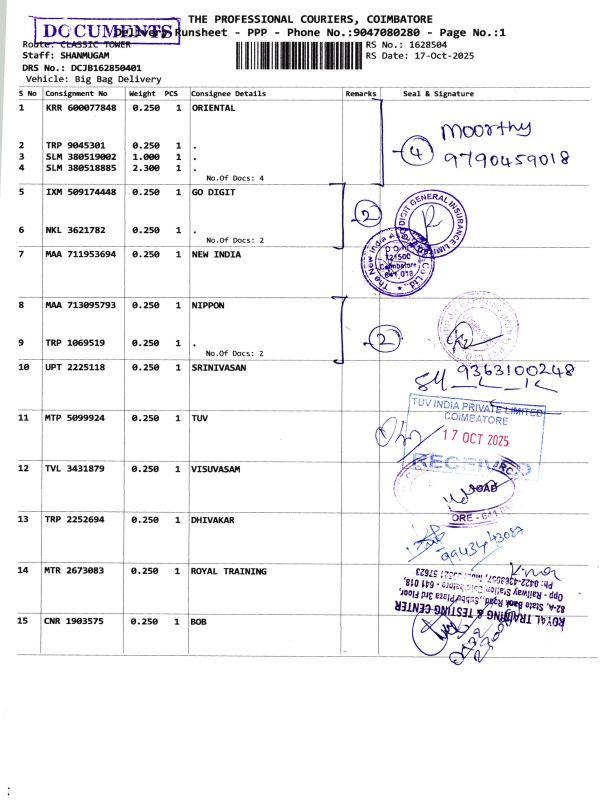 THE PROFESSIONAL COURIERS, COIMBATORE
DOCUMENTS
Delivery Runsheet - PPP - Phone No.:9047080280 - Page No.:1
Route: CLASSIC TOWER RS No.: 1628504
Staff: SHANMUGAM RS Date: 17-Oct-2025
DRS No.: DCJB162850401
Vehicle: Big Bag Delivery
S No Consignment No Weight PCS Consignee Details Remarks Seal & Signature
1 KRR 600077848 0.250 1 ORIENTAL
Moorthy
2 TRP 9045301 0.250 1 .
4
3 SLM 380519002 1.000 1 .
9790459018
4 SLM 380518885 2.300 1 .
No.Of Docs: 4
5 IXM 509174448 0.250 1 GO DIGIT
2
DIGIT GENERAL INSURANCE LIMITED
6 NKL 3621782 0.250 1 .
No.Of Docs: 2
7 MAA 711953694 0.250 1 NEW INDIA
The New India
Co Ltd.
721500
Coimbatore
641 018
8 MAA 713095793 0.250 1 NIPPON
2
9 TRP 1069519 0.250 1 .
No.Of Docs: 2
10 UPT 2225118 0.250 1 SRINIVASAN
9363100248
11 MTP 5099924 0.250 1 TUV
TUV INDIA PRIVATE LIMITED
COIMBATORE
17 OCT 2025
RECEIVED
12 TVL 3431879 0.250 1 VISUVASAM
ROAD
ORE - 641
13 TRP 2252694 0.250 1 DHIVAKAR
9943443087
14 MTR 2673083 0.250 1 ROYAL TRAINING
ROYAL TRAINING & TESTING CENTER
82-A, State Bank Road, Subbu Plaza 3rd Floor,
Opp - Railway Station, Coimbatore - 641 018,
Ph: 0422-4368057, 57623
15 CNR 1903575 0.250 1 BOB